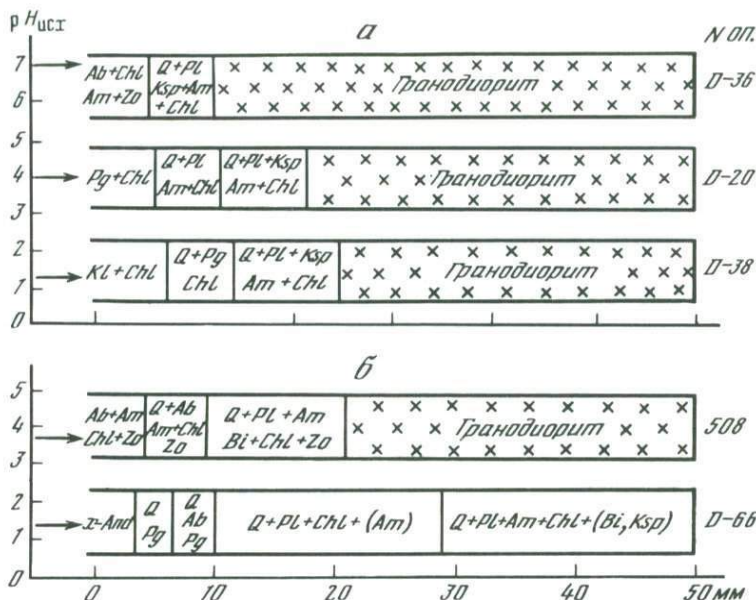 pHисх
а
N оп.
7
6
5
4
3
2
1
0
Ab+Chl
Am+Zo
Q+Pl
Ksp+Am
+Chl
Гранодиорит
D-36
Pg+Chl
Q+Pl
Am+Chl
Q+Pl+Ksp
Am+Chl
Гранодиорит
D-20
Kl+Chl
Q+Pg
Chl
Q+Pl+Ksp
Am+Chl
Гранодиорит
D-38
б
5
4
3
2
1
0
Ab+Am
Chl+Zo
Q+Ab
Am+Chl
Zo
Q+Pl+Am
Bi+Chl+Zo
Гранодиорит
508
x-And
Q
Pg
Q
Ab
Pg
Q+Pl+Chl+(Am)
Q+Pl+Am+Chl+(Bi,Ksp)
D-66
0 10 20 30 40 50 мм